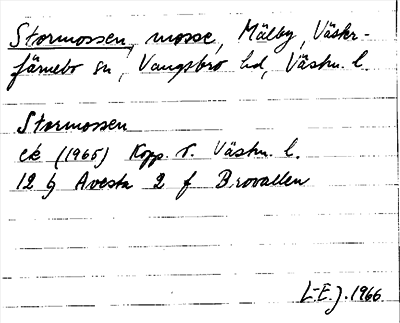 Stormossen, mosse, Mälby, Väster-
färnebo sn, Vangsbro hd, Västm. l.
Stormossen
ek (1965) Kopp. o. Västm. l.
12 G Avesta 2 f Brovallen
L-E.J. 1966